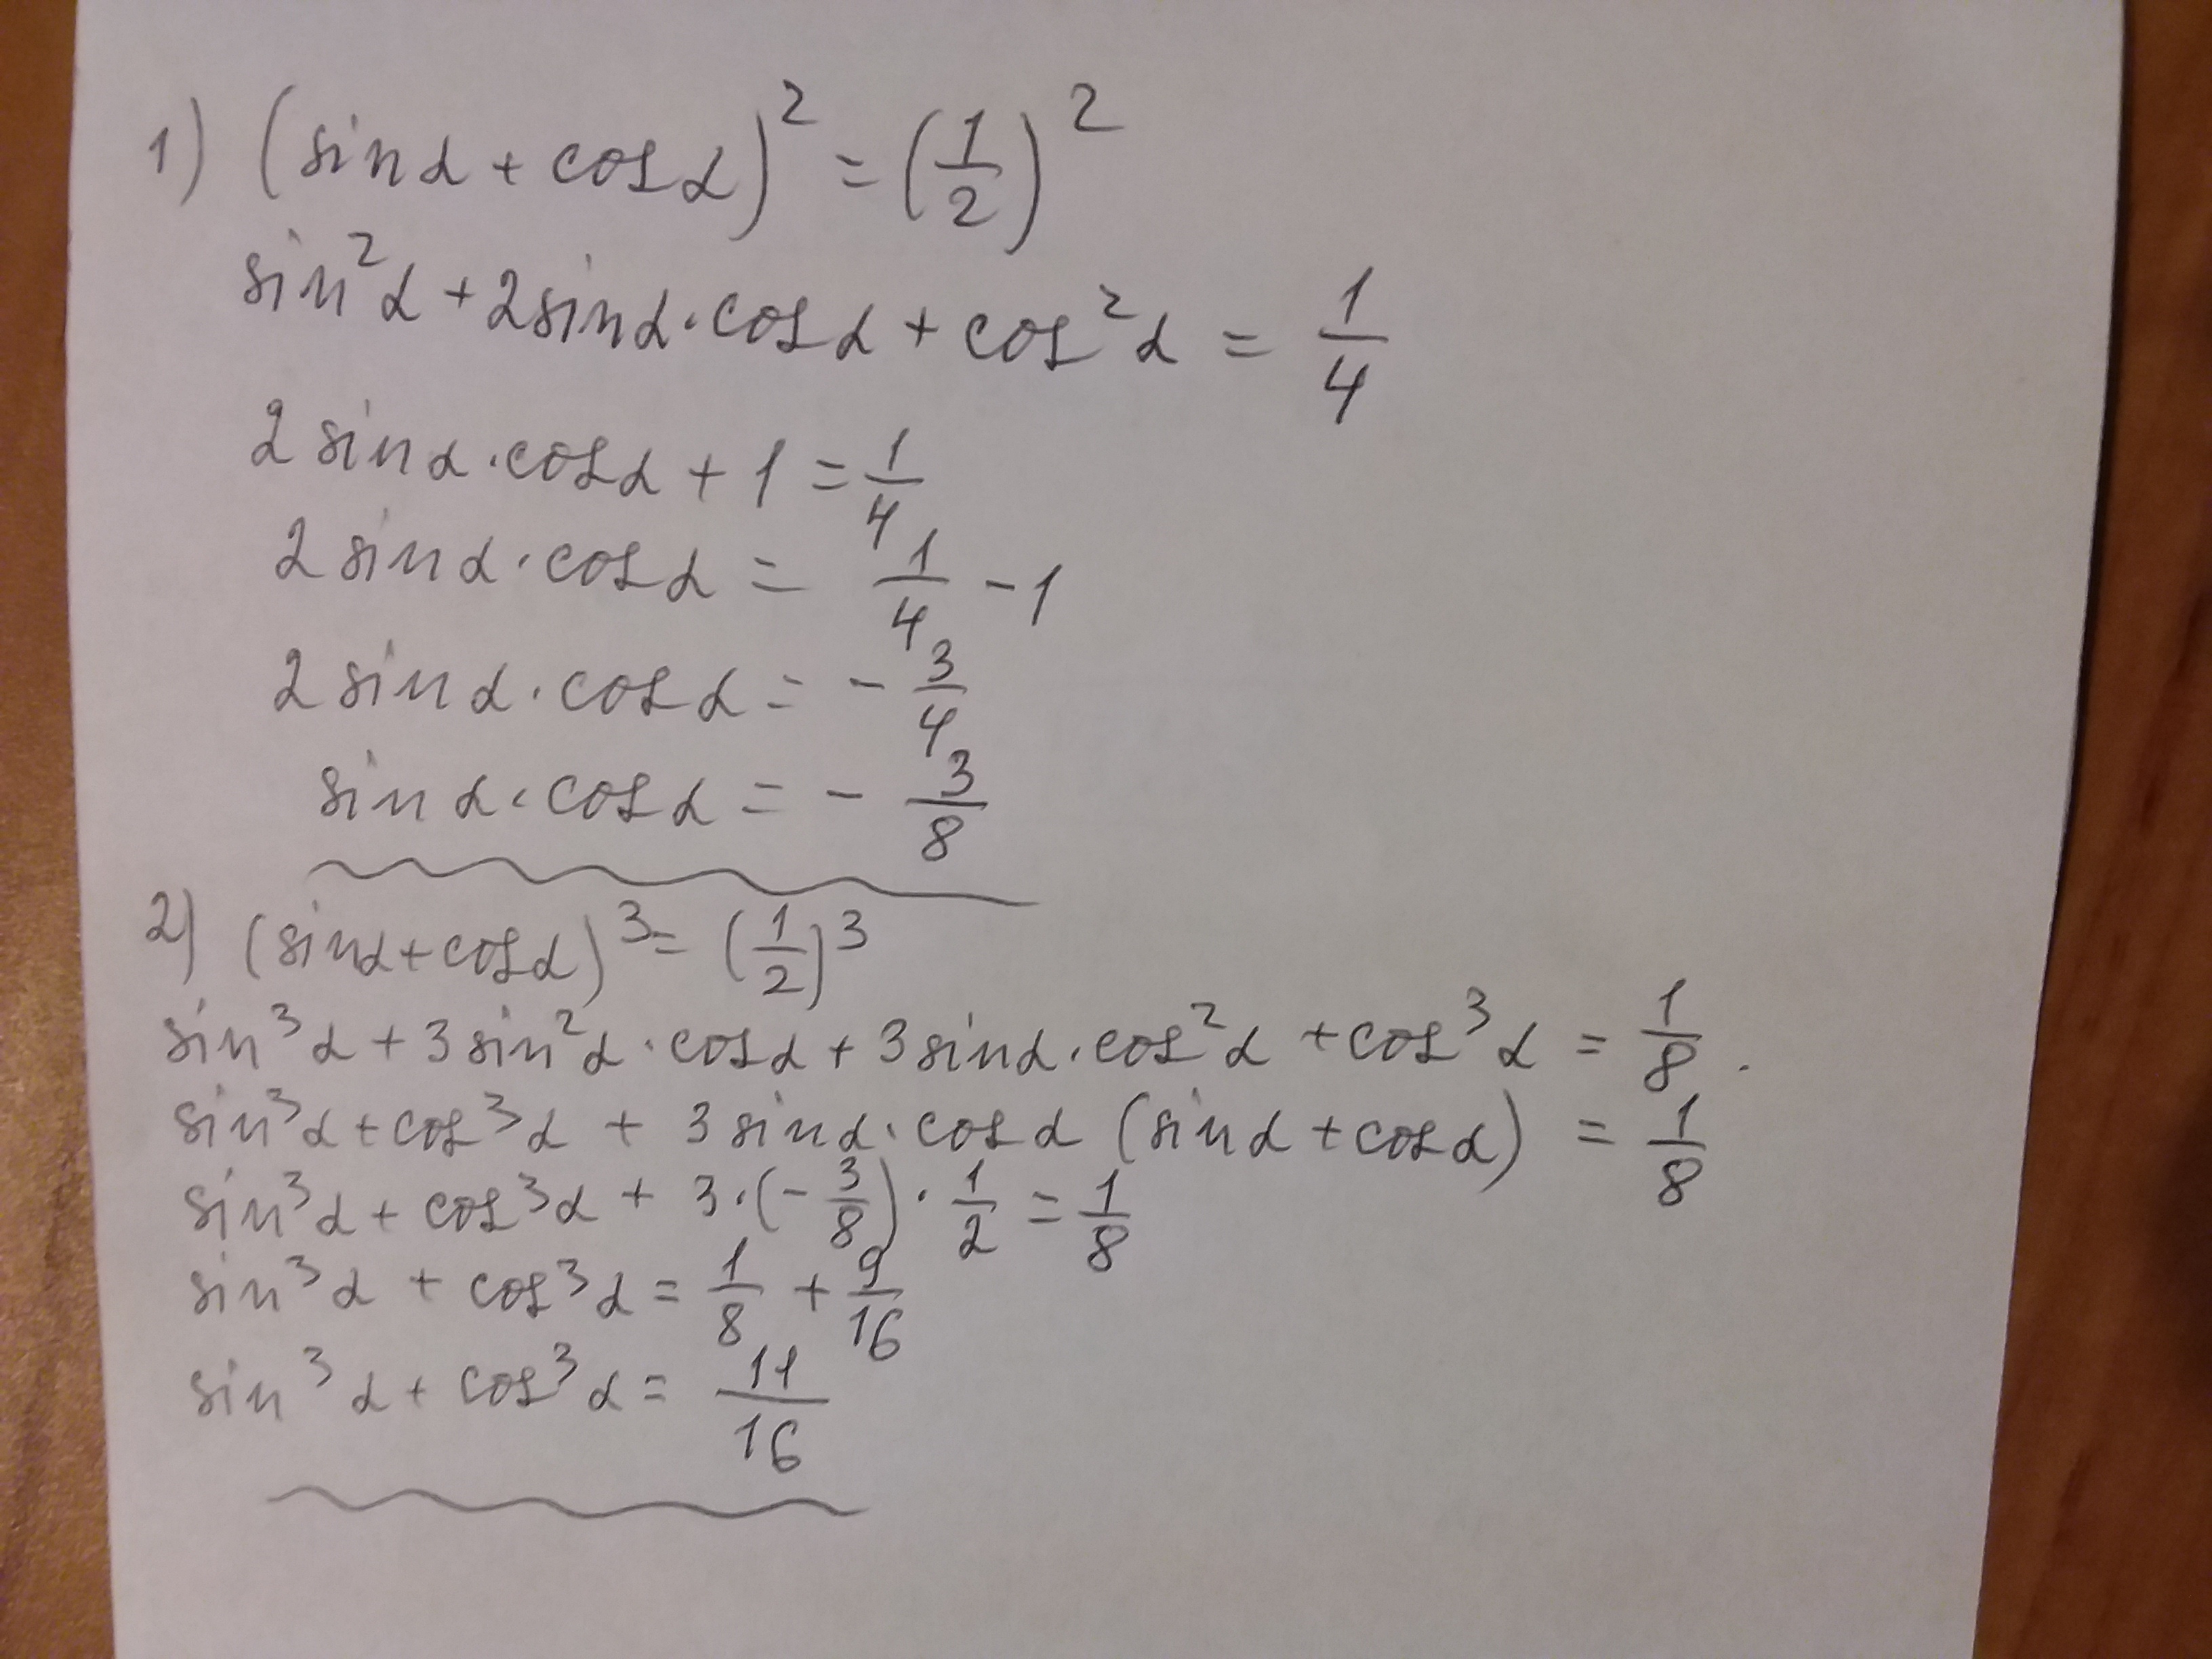 1) (sinα + cosα)² = (1/2)²
sin²α + 2sinα·cosα + cos²α = 1/4
2sinα·cosα + 1 = 1/4
2sinα·cosα = 1/4 - 1
2sinα·cosα = - 3/4
sinα·cosα = - 3/8
2) (sinα+cosα)³ = (1/2)³
sin³α + 3sin²α·cosα + 3sinα·cos²α + cos³α = 1/8.
sin³α + cos³α + 3sinα·cosα (sinα + cosα) = 1/8
sin³α + cos³α + 3·(- 3/8)·1/2 = 1/8
sin³α + cos³α = 1/8 + 9/16
sin³α + cos³α = 11/16